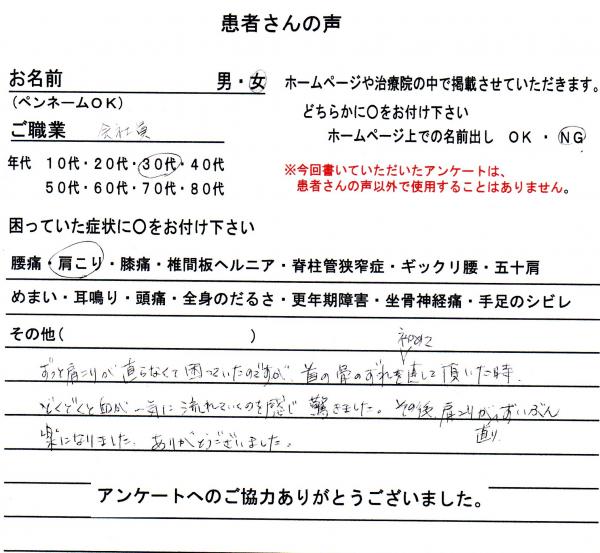 患者さんの声
お名前 男・女
(ペンネームOK)
ホームページや治療院の中で掲載させていただきます。
どちらかに〇をお付け下さい
ホームページ上での名前出し OK ・ NG
ご職業 会社員
年代 10代・20代・30代・40代
50代・60代・70代・80代
※今回書いていただいたアンケートは、
患者さんの声以外で使用することはありません。
困っていた症状に〇をお付け下さい
腰痛・肩こり・膝痛・椎間板ヘルニア・脊柱管狭窄症・ギックリ腰・五十肩
めまい・耳鳴り・頭痛・全身のだるさ・更年期障害・坐骨神経痛・手足のシビレ
その他( )
初めて
ずっと肩こりが直らなくて困っていたのですが 首の骨のずれを直して頂いた時、
どくどくと血が一気に流れていくのを感じ 驚きました。その後、肩こりが、ずいぶん
直り
楽になりました。ありがとうございました。
アンケートへのご協力ありがとうございました。